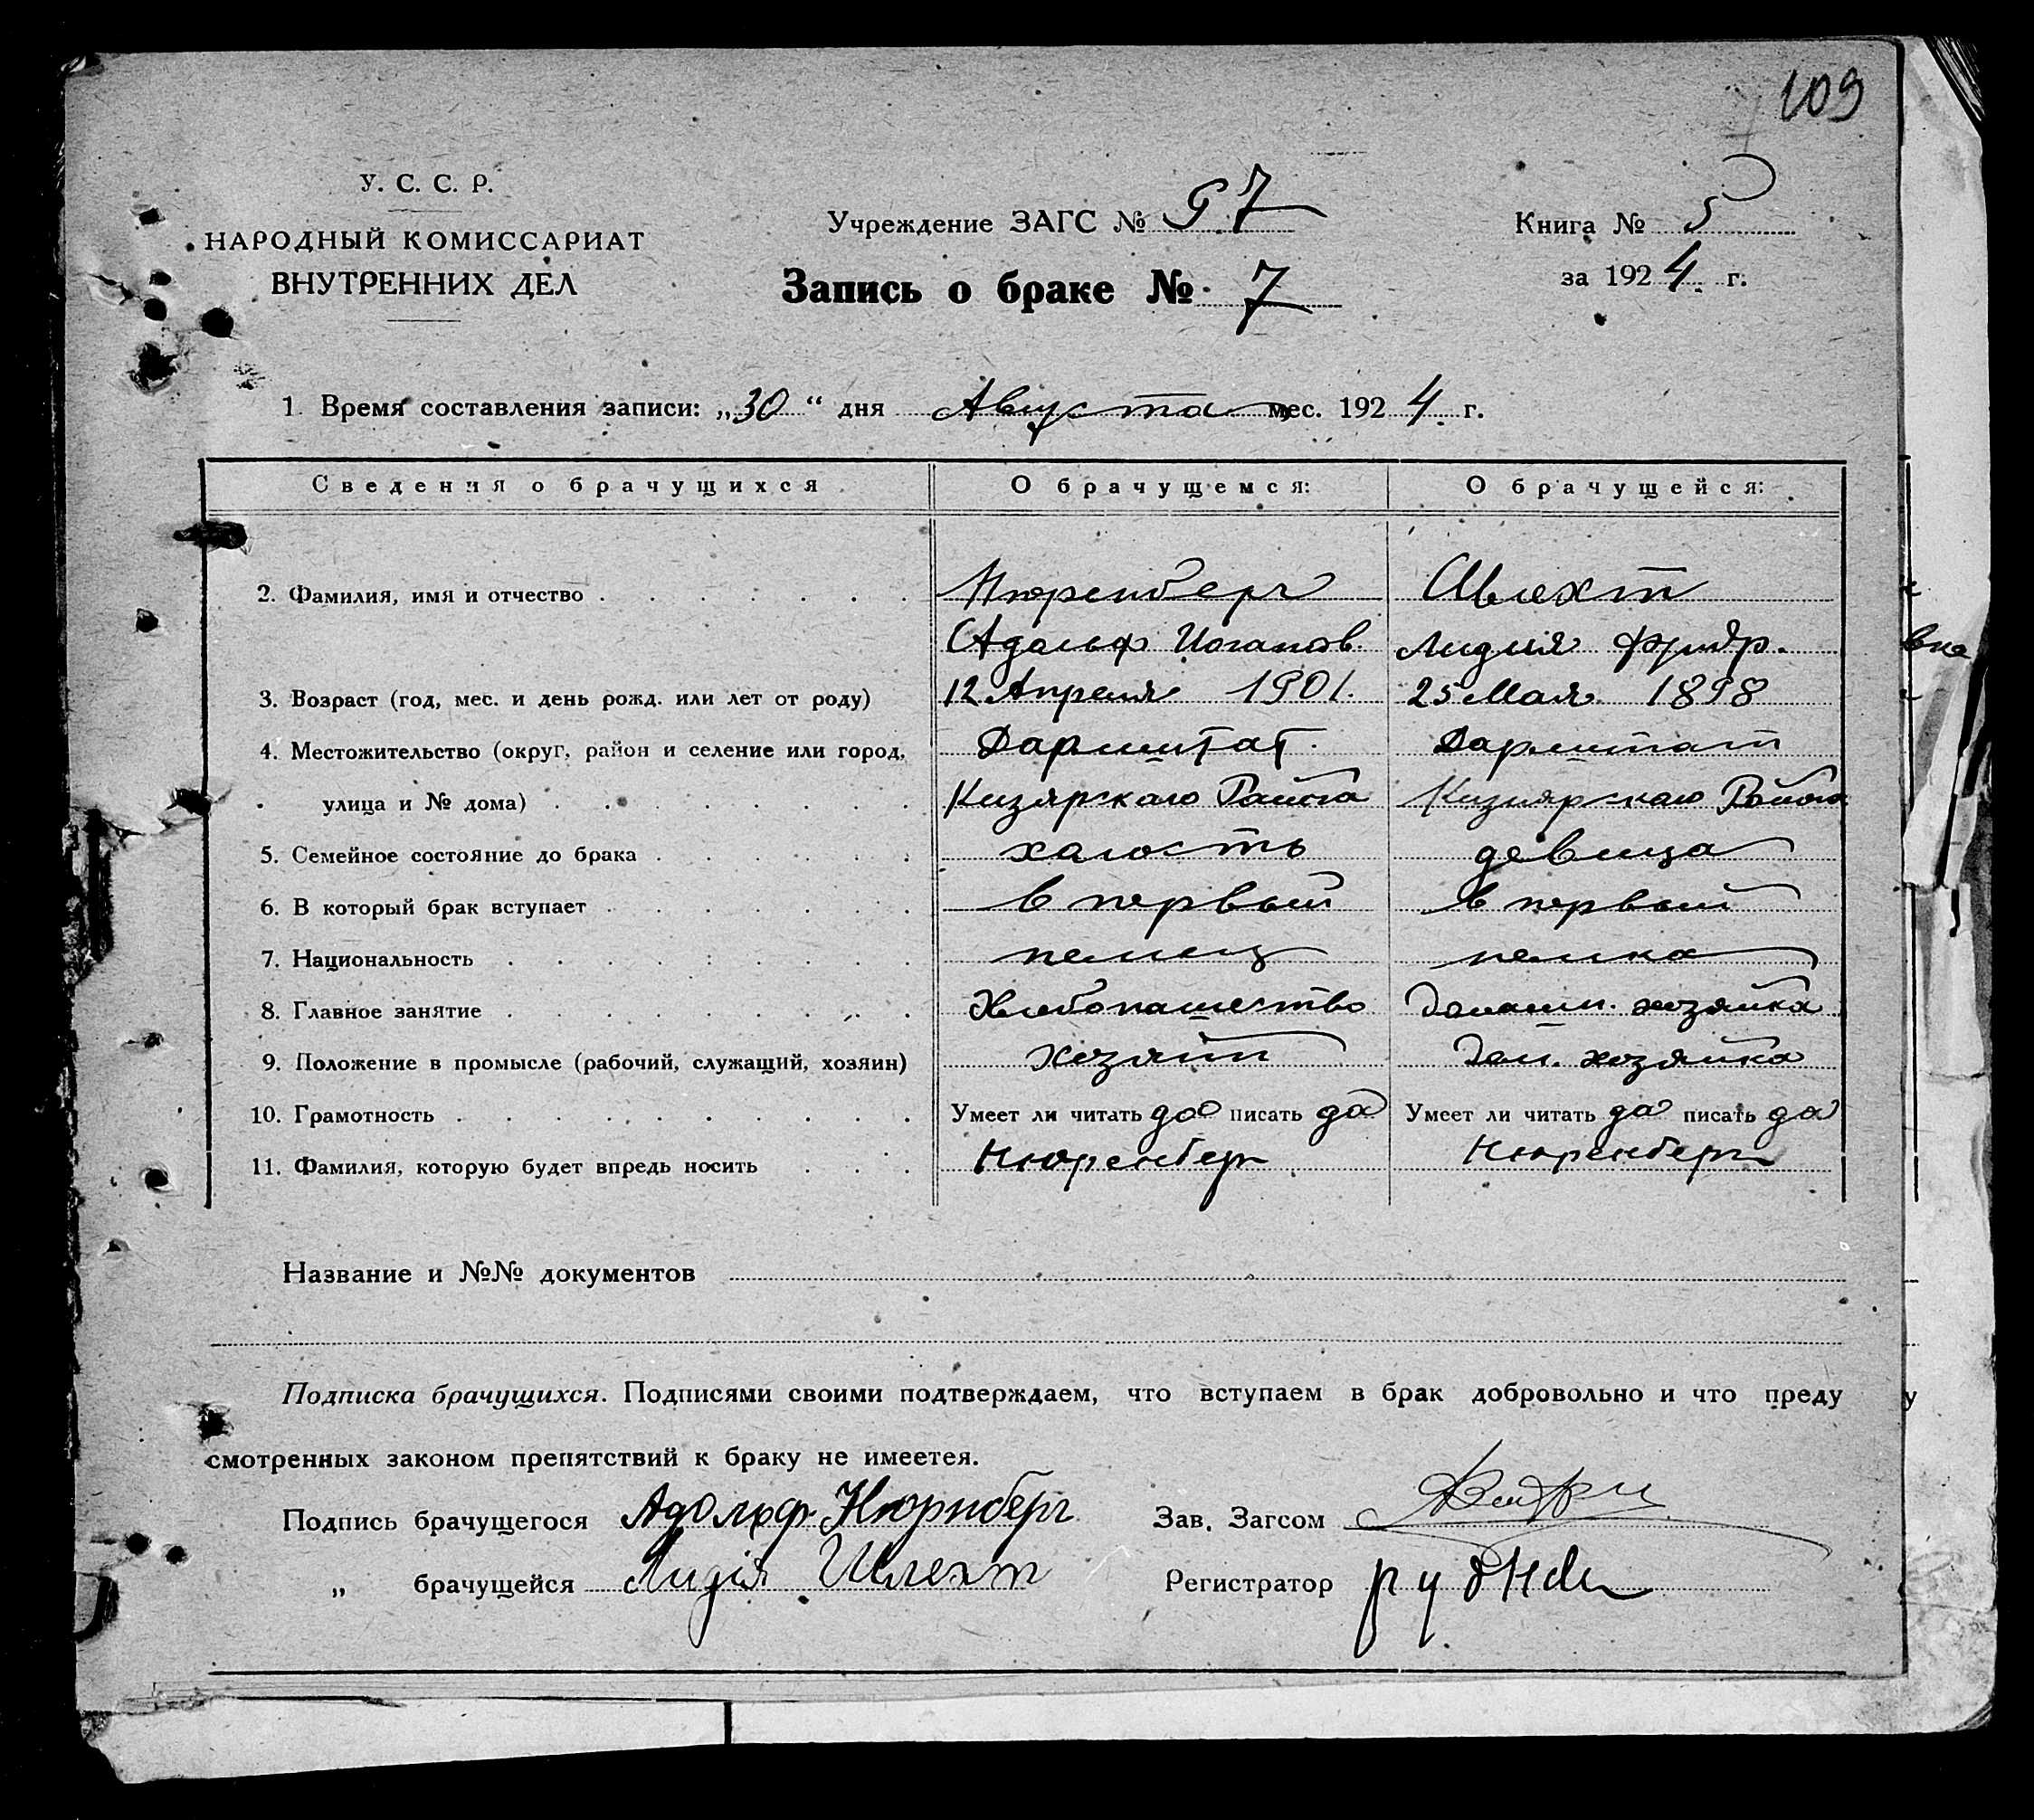 109
У. С. С. Р.
НАРОДНЫЙ КОМИССАРИАТ
ВНУТРЕННИХ ДЕЛ
Учреждение ЗАГС № 97
Запись о браке № 7
Книга № 5
за 1924 г.
1. Время составления записи: „30“ дня Августа мес. 1924 г.
Сведения о брачущихся О брачущемся: О брачущейся:
2. Фамилия, имя и отчество Нюренберг Шлехт
Адольф Иоганов. Лидия Фридр.
3. Возраст (год, мес. и день рожд. или лет от роду) 12 Апреля 1901. 25 Мая 1898
4. Местожительство (округ, район и селение или город, Дармштат. Дармштат
улица и № дома) Кизярскаго Района Кизиярскаго Района
5. Семейное состояние до брака халость девица
6. В который брак вступает в первый в первый
7. Национальность немец немка
8. Главное занятие Хлебопашество Домашн. хозяйка
9. Положение в промысле (рабочий, служащий, хозяин) хозяин Дом. хозяйка
10. Грамотность Умеет ли читать да писать да Умеет ли читать да писать да
11. Фамилия, которую будет впредь носить Нюренберг Нюренберг
Название и №№ документов
Подписка брачущихся. Подписями своими подтверждаем, что вступаем в брак добровольно и что преду
смотренных законом препятствий к браку не имеетея.
Подпись брачущегося Адольф Нюрнберг Зав. Загсом
„ брачущейся Лидія Шлехт Регистратор